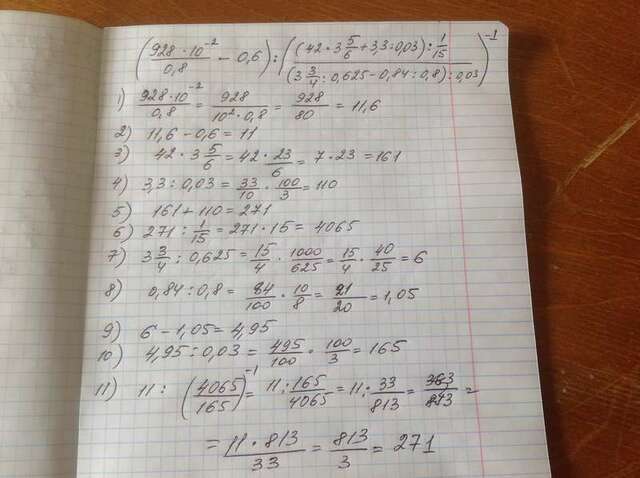 (928·10⁻²/0,8 − 0,6) : ((42·3 5/6 + 3,3:0,03) : 1/15 / (3 3/4 : 0,625 − 0,84:0,8) : 0,03)⁻¹
1) 928·10⁻²/0,8 = 928/10²·0,8 = 928/80 = 11,6
2) 11,6 − 0,6 = 11
3) 42·3 5/6 = 42·23/6 = 7·23 = 161
4) 3,3 : 0,03 = 33/10 · 100/3 = 110
5) 161 + 110 = 271
6) 271 : 1/15 = 271·15 = 4065
7) 3 3/4 : 0,625 = 15/4 · 1000/625 = 15/4 · 40/25 = 6
8) 0,84 : 0,8 = 84/100 · 10/8 = 21/20 = 1,05
9) 6 − 1,05 = 4,95
10) 4,95 : 0,03 = 495/100 · 100/3 = 165
11) 11 : (4065/165)⁻¹ = 11 : 165/4065 = 11 : 33/813 = 363/813 =
= 11·813/33 = 813/3 = 271